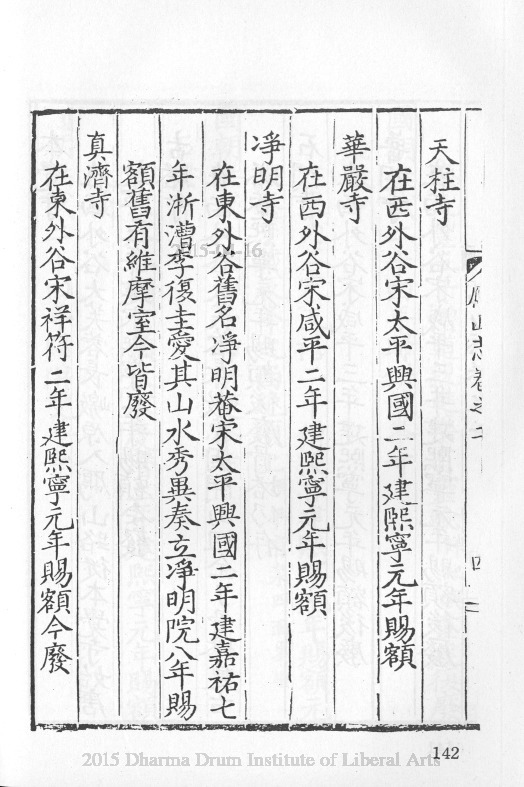 天柱寺
在西外谷宋太平興國二年建熈寧元年賜額
華嚴寺
在西外谷宋咸平二年建熈寧元年賜額
凈明寺
在東外谷舊名凈明菴宋太平興國二年建嘉祐七
年淅漕李復圭愛其山水秀異奏立凈明院八年賜
額舊有維摩室今皆廢
真濟寺
在東外谷宋祥符二年建熈寧元年賜額今廢
山志卷之
142
2015 Dharma Drum Institute of Liberal Arts